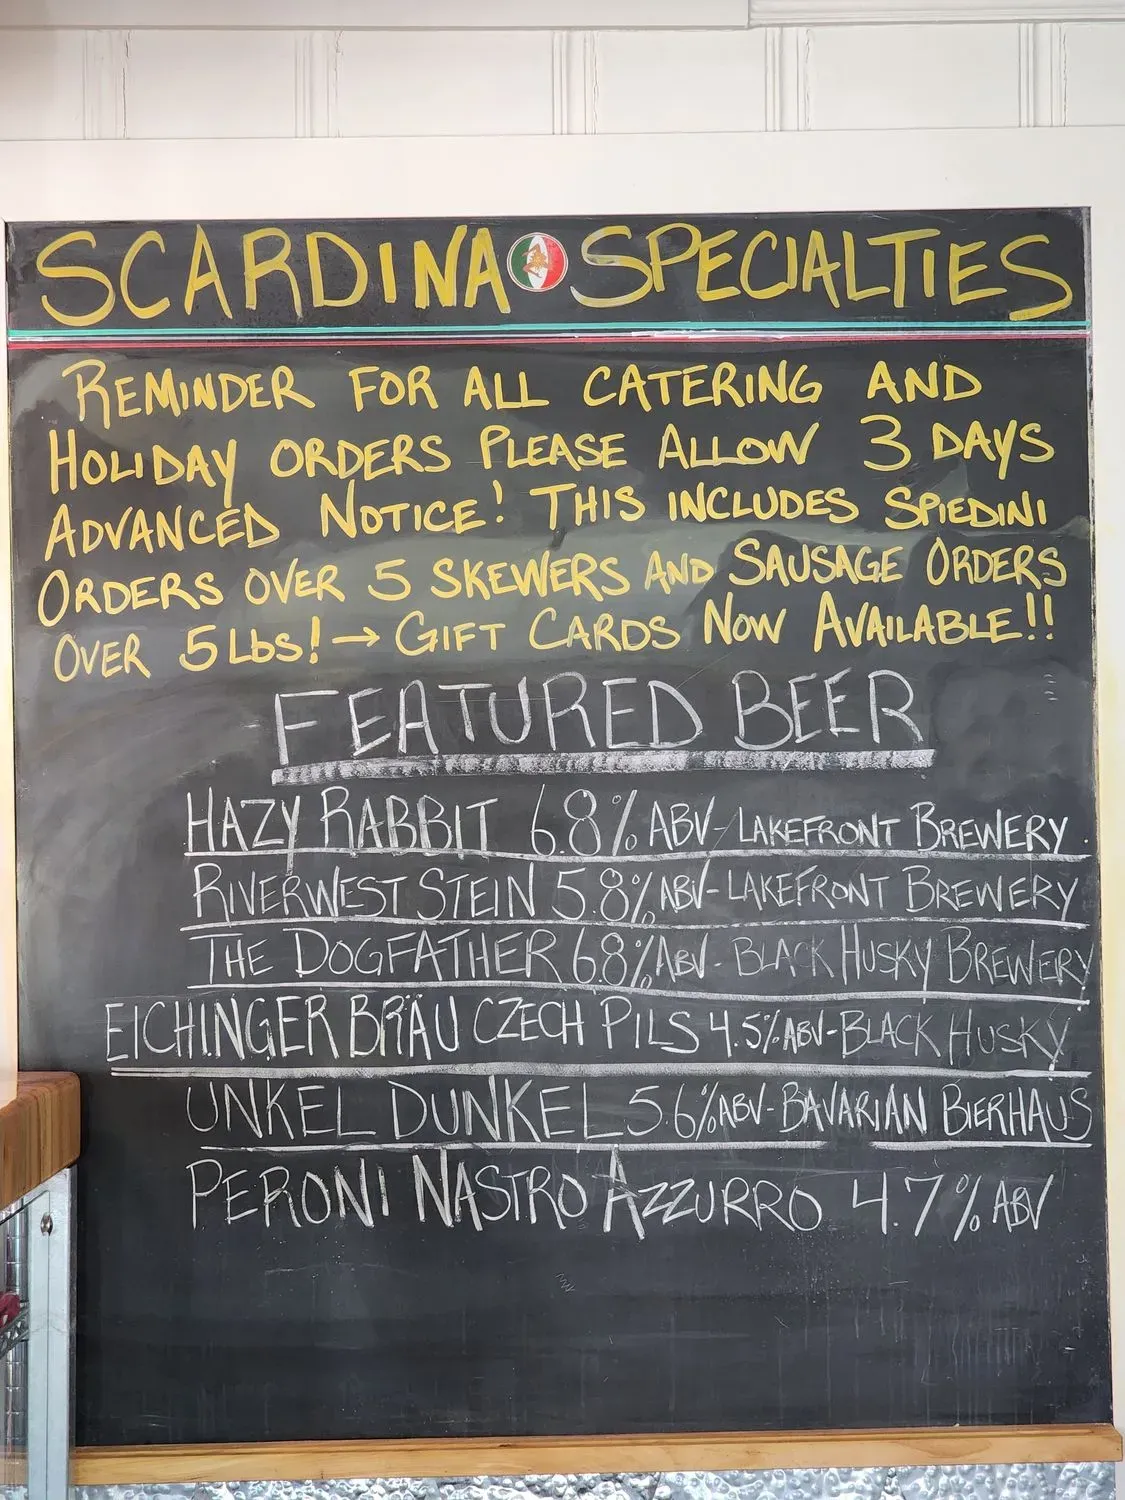 SCARDINA SPECIALTIES
REMINDER FOR ALL CATERING AND
HOLIDAY ORDERS PLEASE ALLOW 3 DAYS
ADVANCED NOTICE! THIS INCLUDES SPIEDINI
ORDERS OVER 5 SKEWERS AND SAUSAGE ORDERS
OVER 5 Lbs! → GIFT CARDS NOW AVAILABLE!!
FEATURED BEER
HAZY RABBIT 6.8% ABV - LAKEFRONT BREWERY
RIVERWEST STEIN 5.8% ABV - LAKEFRONT BREWERY
THE DOGFATHER 6.8% ABV - BLACK HUSKY BREWERY
EICHINGER BRÄU CZECH PILS 4.5% ABV - BLACK HUSKY
UNKEL DUNKEL 5.6% ABV - BAVARIAN BIERHAUS
PERONI NASTRO AZZURRO 4.7% ABV